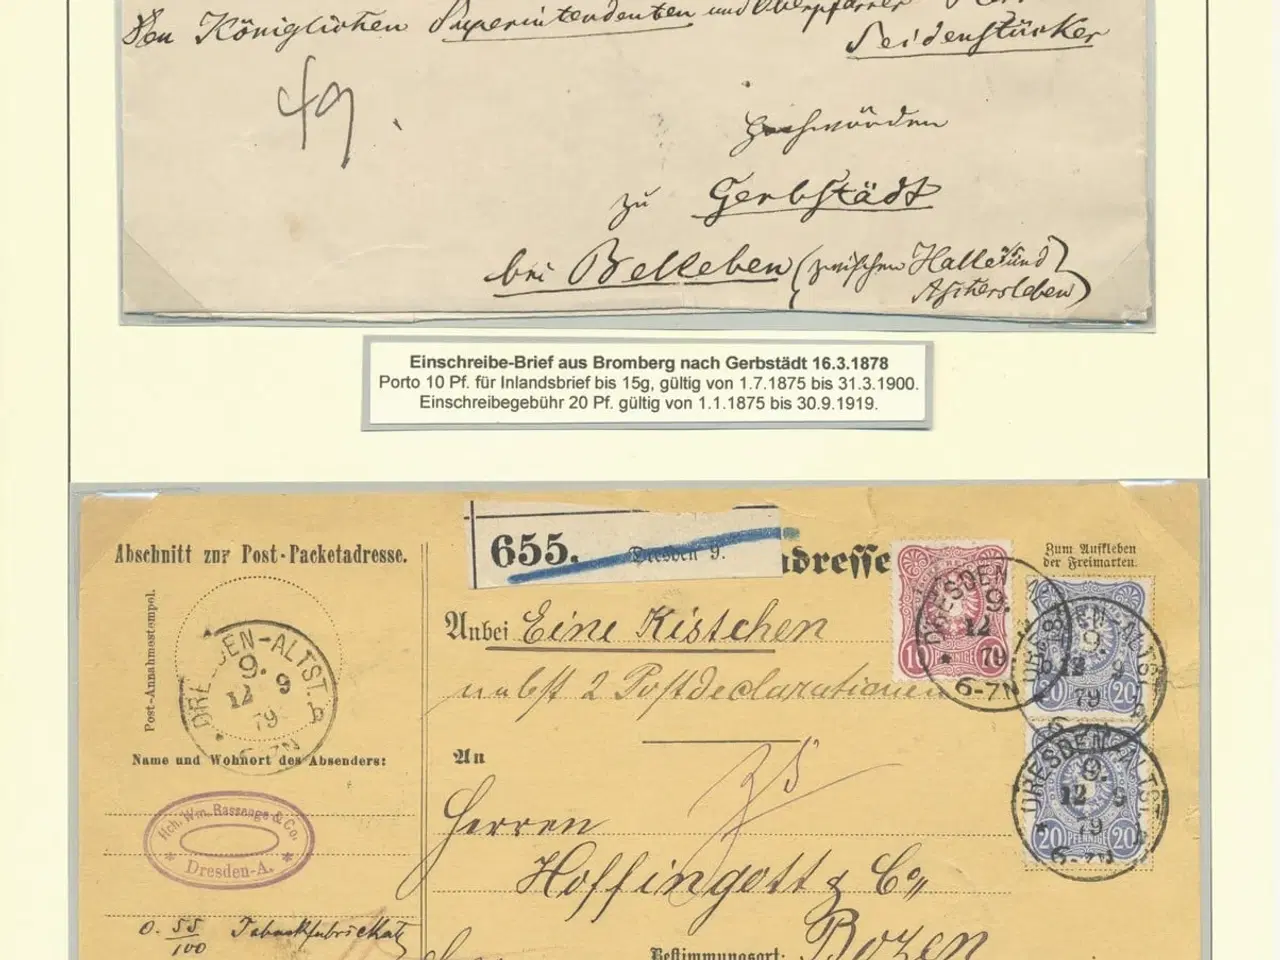 Den Königlichen Superintendenten und Oberpfarrer
Seidenstücker
49.
Hochwürden
zu Gerbstädt
bei Belleben (zwischen Halle und
Aschersleben)
Einschreibe-Brief aus Bromberg nach Gerbstädt 16.3.1878
Porto 10 Pf. für Inlandsbrief bis 15g, gültig von 1.7.1875 bis 31.3.1900.
Einschreibegebühr 20 Pf. gültig von 1.1.1875 bis 30.9.1919.
Abschnitt zur Post-Packetadresse.
Post-Annahmestempel.
DRESDEN-ALTST.
9.
12 9
79
6-7N
Name und Wohnort des Absenders:
Hch. Wm. Bassenge & Co.
Dresden-A.
0. 55/100 Tabackfabrickate
655. Dresden 9.
adresse
Zum Aufkleben
der Freimarken.
Anbei Eine Kistchen
nebst 2 Postdeclarationen
10 PFENNIGE 10
DRESDEN-A
9.
12
79
6-7N
20 20
DRESDEN-ALTST
9.
12 9
79
20 PFENNIGE 20
DRESDEN-ALTST
9.
12 9
79
6-7N
An
Herren
Hoffingott & Co
Bestimmungsort: Bozen